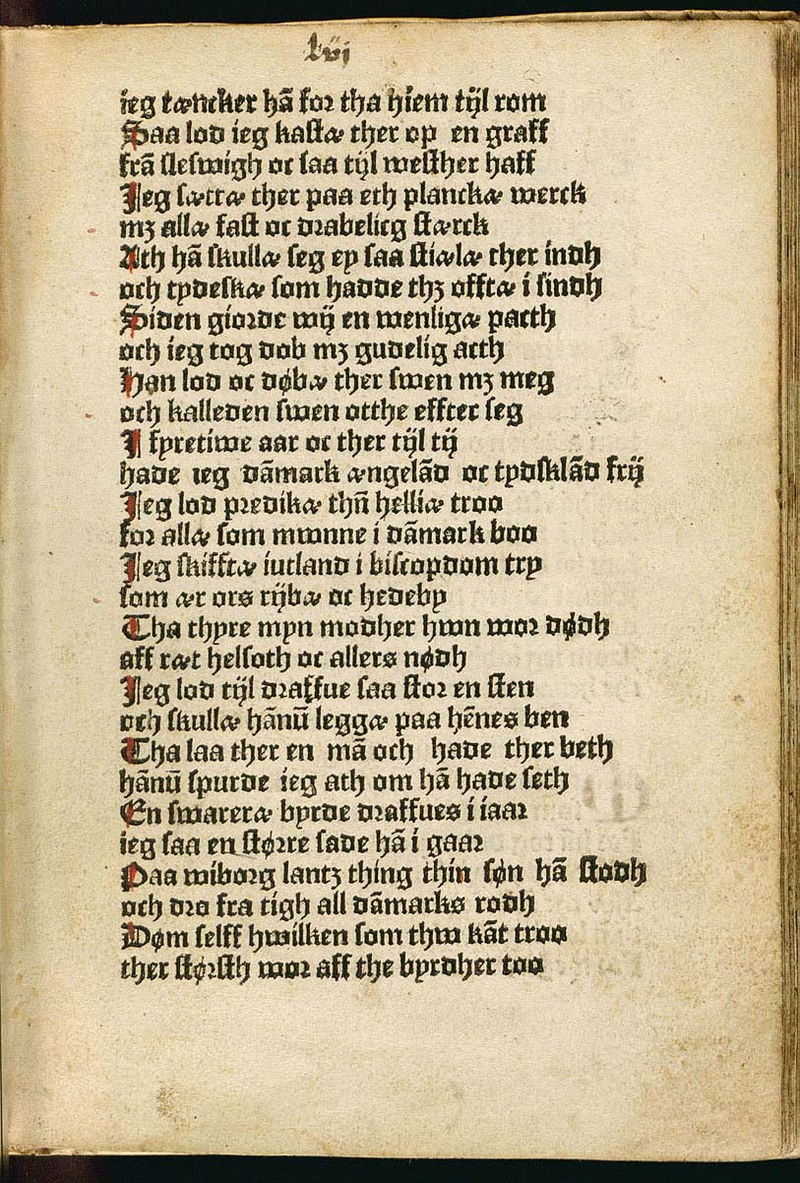 lvij
ieg tæncker hā for tha hiem tijl rom
Saa lod ieg kastæ ther op en graff
frā sleswigh oc saa tijl westher haff
Jeg sættæ ther paa eth planckæ werck
mꝫ allæ fast oc drabelicg stærck
Ath hā skullæ seg ey saa stiælæ ther indh
och tydeskæ som hadde thꝫ offtæ i sindh
Siden giorde wij en wenligæ pacth
och ieg tog dob mꝫ gudelig acth
Han lod oc døbæ ther swen mꝫ meg
och kalleden swen otthe effter seg
I fyretiwe aar oc ther tijl tij
hade ieg dāmark ængelād oc tydsklād frij
Jeg lod predikæ thn̄ helliæ troo
for allæ som mwnne i dāmark boo
Jeg skifftæ iutland i biscopdom try
som ær ors rijbæ oc hedeby
Tha thyre myn modher hwn wor dødh
aff ræt helsoth oc allers nødh
Jeg lod tijl draffue saa stor en sten
och skullæ hānū leggæ paa hēnes ben
Tha laa ther en mā och hade ther beth
hānū spurde ieg ath om hā hade seth
En swareræ byrde draffues i iaar
ieg saa en større sade hā i gaar
Paa wiborg lantꝫ thing thin søn hā stodh
och dro fra tigh all dāmarks rodh
Døm selff hwilken som thw kāt troo
ther størsth wor aff the byrdher too